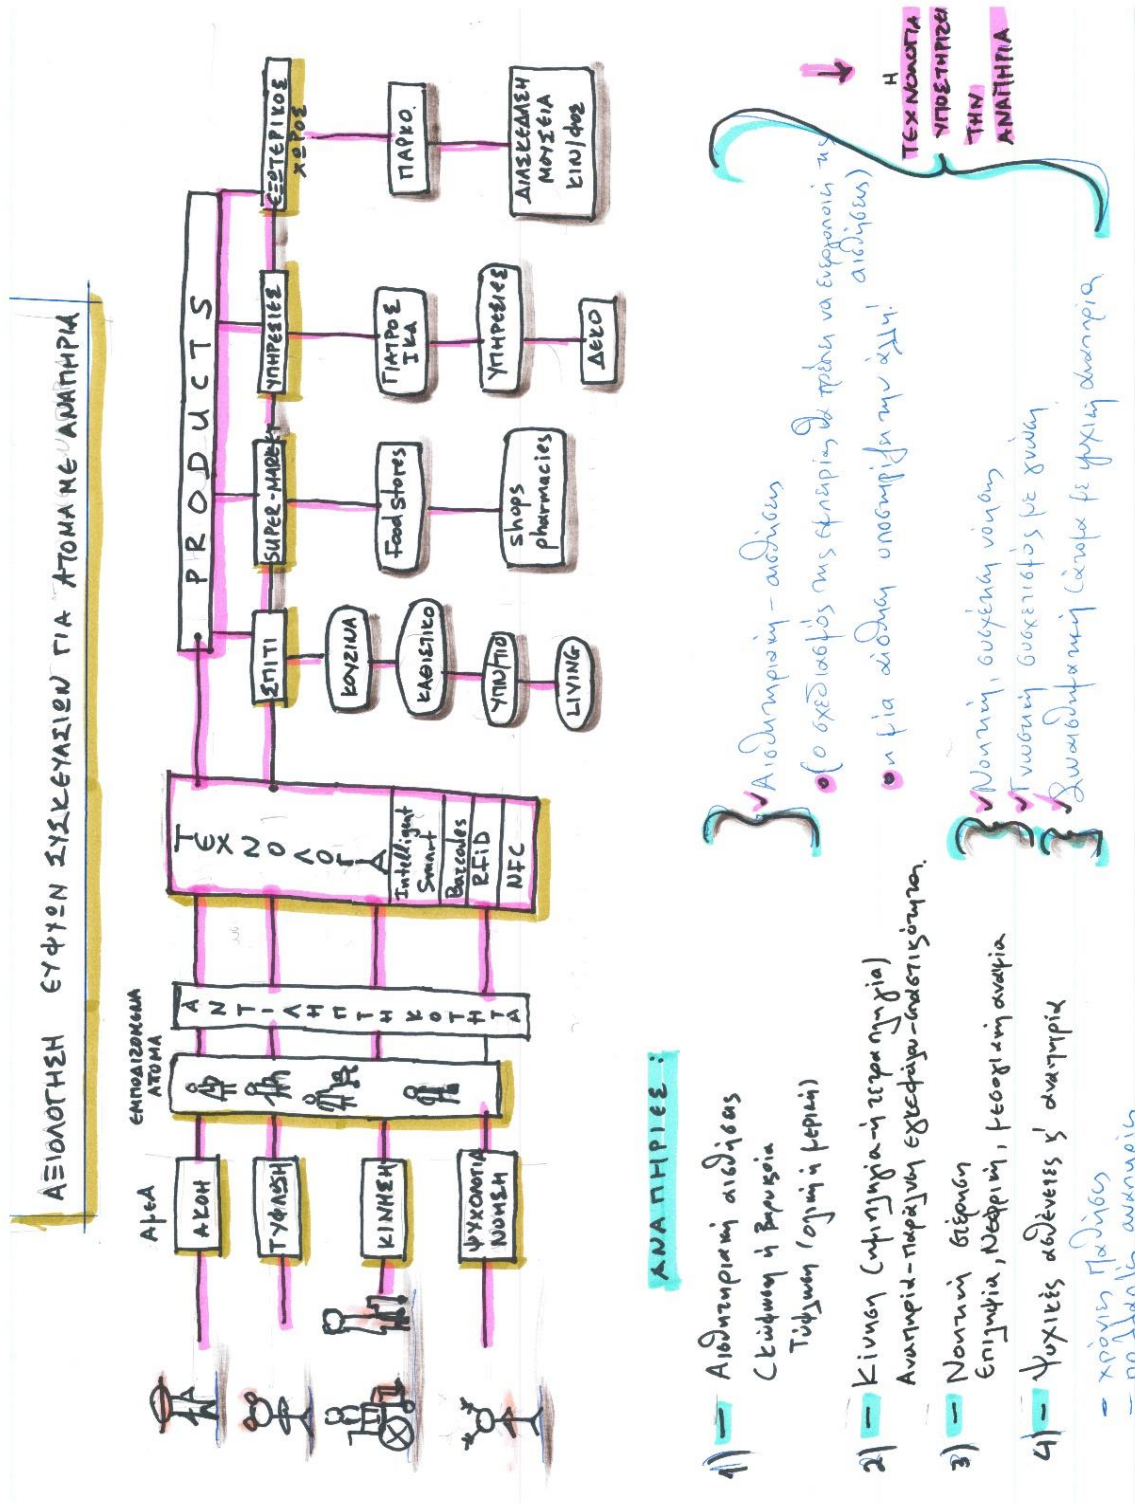 ΑΞΙΟΛΟΓΗΣΗ ΕΥΦΥΩΝ ΣΥΣΚΕΥΑΣΙΩΝ ΓΙΑ ΑΤΟΜΑ ΜΕ ΑΝΑΠΗΡΙΑ
ΑμεΑ
ΕΜΠΟΔΙΖΟΜΕΝΑ
ΑΤΟΜΑ
ΑΚΟΗ
ΤΥΦΛΩΣΗ
ΚΙΝΗΣΗ
ΨΥΧΟΛΟΓΙΑ
ΝΟΗΣΗ
ΑΝΤΙΛΗΠΤΗΚΟΤΗΤΑ
ΤΕΧΝΟΛΟΓΙΑ
Intelligent
Smart
Barcodes
RFiD
NFC
PRODUCTS
ΣΠΙΤΙ
ΚΟΥΖΙΝΑ
ΚΑΘΙΣΤΙΚΟ
ΥΠΝ/ΤΙΟ
LIVING
SUPER-MARKET
Food stores
shops
pharmacies
ΥΠΗΡΕΣΙΕΣ
ΓΙΑΤΡΟΣ
ΙΚΑ
ΥΠΗΡΕΣΙΕΣ
ΔΕΚΟ
ΕΞΩΤΕΡΙΚΟΣ
ΧΩΡΟΣ
ΠΑΡΚΟ
ΔΙΑΣΚΕΔΑΣΗ
ΜΟΥΣΕΙΑ
ΚΙΝ/ΦΟΣ
ΑΝΑΠΗΡΙΕΣ:
1) – Αισθητηριακή αισθήσεις
(κώφωση ή βαρηκοΐα
Τύφλωση (ολική ή μερική)
2) – Κίνηση (ημιπληγία-ή τετραπληγία)
Αναπηρία-παράλυση εγκεφάλου-σπαστικότητα.
3) – Νοητική στέρηση
Επιληψία, Νεφρική, μεσογιακή αναιμία
4) – Ψυχικές ασθένειες ς' αναπηρία
– χρόνιες Παθήσεις
– πολλαπλές αναπηρίες
Αισθητηριακή - αισθήσεις
(ο σχεδιασμός της εμπειρίας θα πρέπει να ενεργοποιεί της
αισθήσεις)
η μία αίσθηση υποστηρίζει την άλλη!
Νοητική, συσχέτιση νόησης
Γνωστική συσχετισμός με γνώση
Συναισθηματική (άτομα με ψυχική αναπηρία
Η
ΤΕΧΝΟΛΟΓΙΑ
ΥΠΟΣΤΗΡΙΖΕΙ
ΤΗΝ
ΑΝΑΠΗΡΙΑ